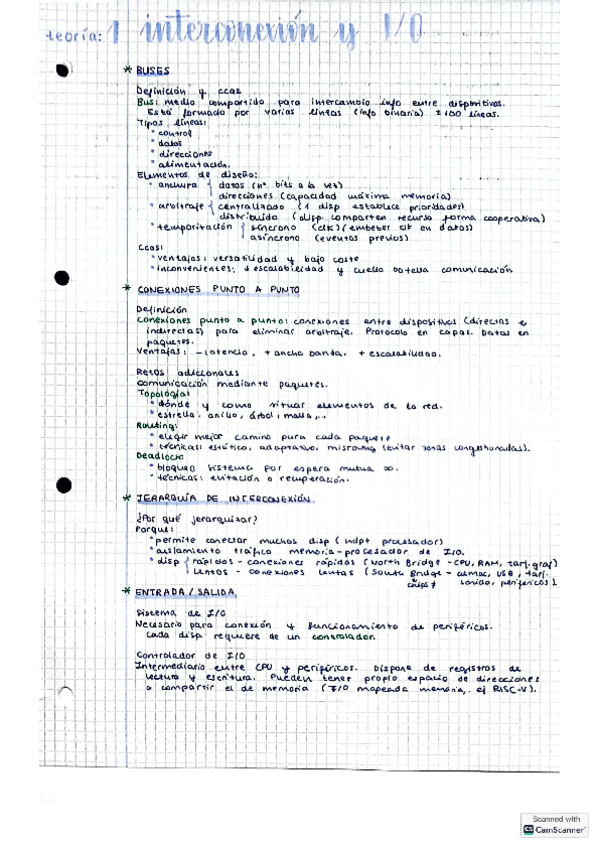 teoría: 1 interconexión y I/O
* BUSES
Definición y ccas
Bus: medio compartido para intercambio info entre dispositivos.
Está formado por varias líneas (info binaria) ± 100 líneas.
Tipos líneas:
• control
• datos
• direcciones
• alimentación.
Elementos de diseño:
• anchura { datos (nº bits a la vez)
direcciones (capacidad máxima memoria)
• arbitraje { centralizado (1 disp establece prioridades)
distribuido (disp comparten recurso forma cooperativa)
• temporización { síncrono (clk) (embeber clk en datos)
asíncrono (eventos previos)
Ccas:
• ventajas: versatilidad y bajo coste
• inconvenientes: ↓ escalabilidad y cuello botella comunicación
* CONEXIONES PUNTO A PUNTO
Definición
Conexiones punto a punto: conexiones entre dispositivos (directas e
indirectas) para eliminar arbitraje. Protocolo en capas. Datos en
paquetes.
Ventajas: - latencia, + ancho banda, + escalabilidad.
Retos adicionales
Comunicación mediante paquetes.
Topología:
• dónde y como situar elementos de la red.
• estrella, anillo, árbol, malla,...
Routing:
• elegir mejor camino para cada paquete
• técnicas: estático, adaptativo, misrouting (evitar zonas congestionadas).
Deadlock:
• bloqueo sistema por espera mutua ∞.
• técnicas: evitación o recuperación.
* JERARQUÍA DE INTERCONEXIÓN
¿Por qué jerarquizar?
Porque:
• permite conectar muchos disp (indpt procesador)
• aislamiento tráfico memoria-procesador de I/O.
• disp { rápidos - conexiones rápidas (North Bridge - CPU, RAM, tarj. graf)
lentos - conexiones lentas (South Bridge - almac, USB, tarj.
chips sonido, periféricos)
* ENTRADA/SALIDA
Sistema de I/O
Necesario para conexión y funcionamiento de periféricos.
Cada disp requiere de un controlador.
Controlador de I/O
Intermediario entre CPU y periféricos. Dispone de registros de
lectura y escritura. Pueden tener propio espacio de direcciones
o compartir el de memoria (I/O mapeada memoria, ej RISC-V).
Scanned with
CS CamScanner